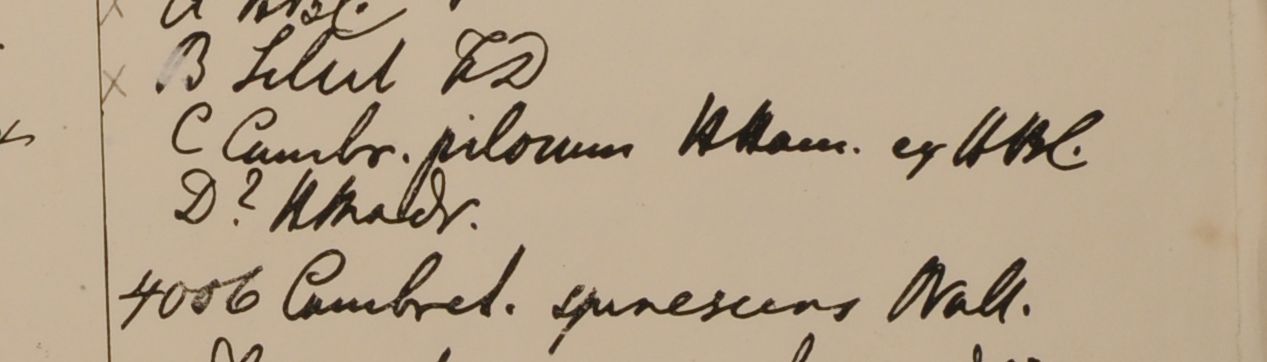 B Silhet FD
C Combr. pilosum HHam. ex HBC.
D? HMadr.
4006 Combret. spinescens Wall.